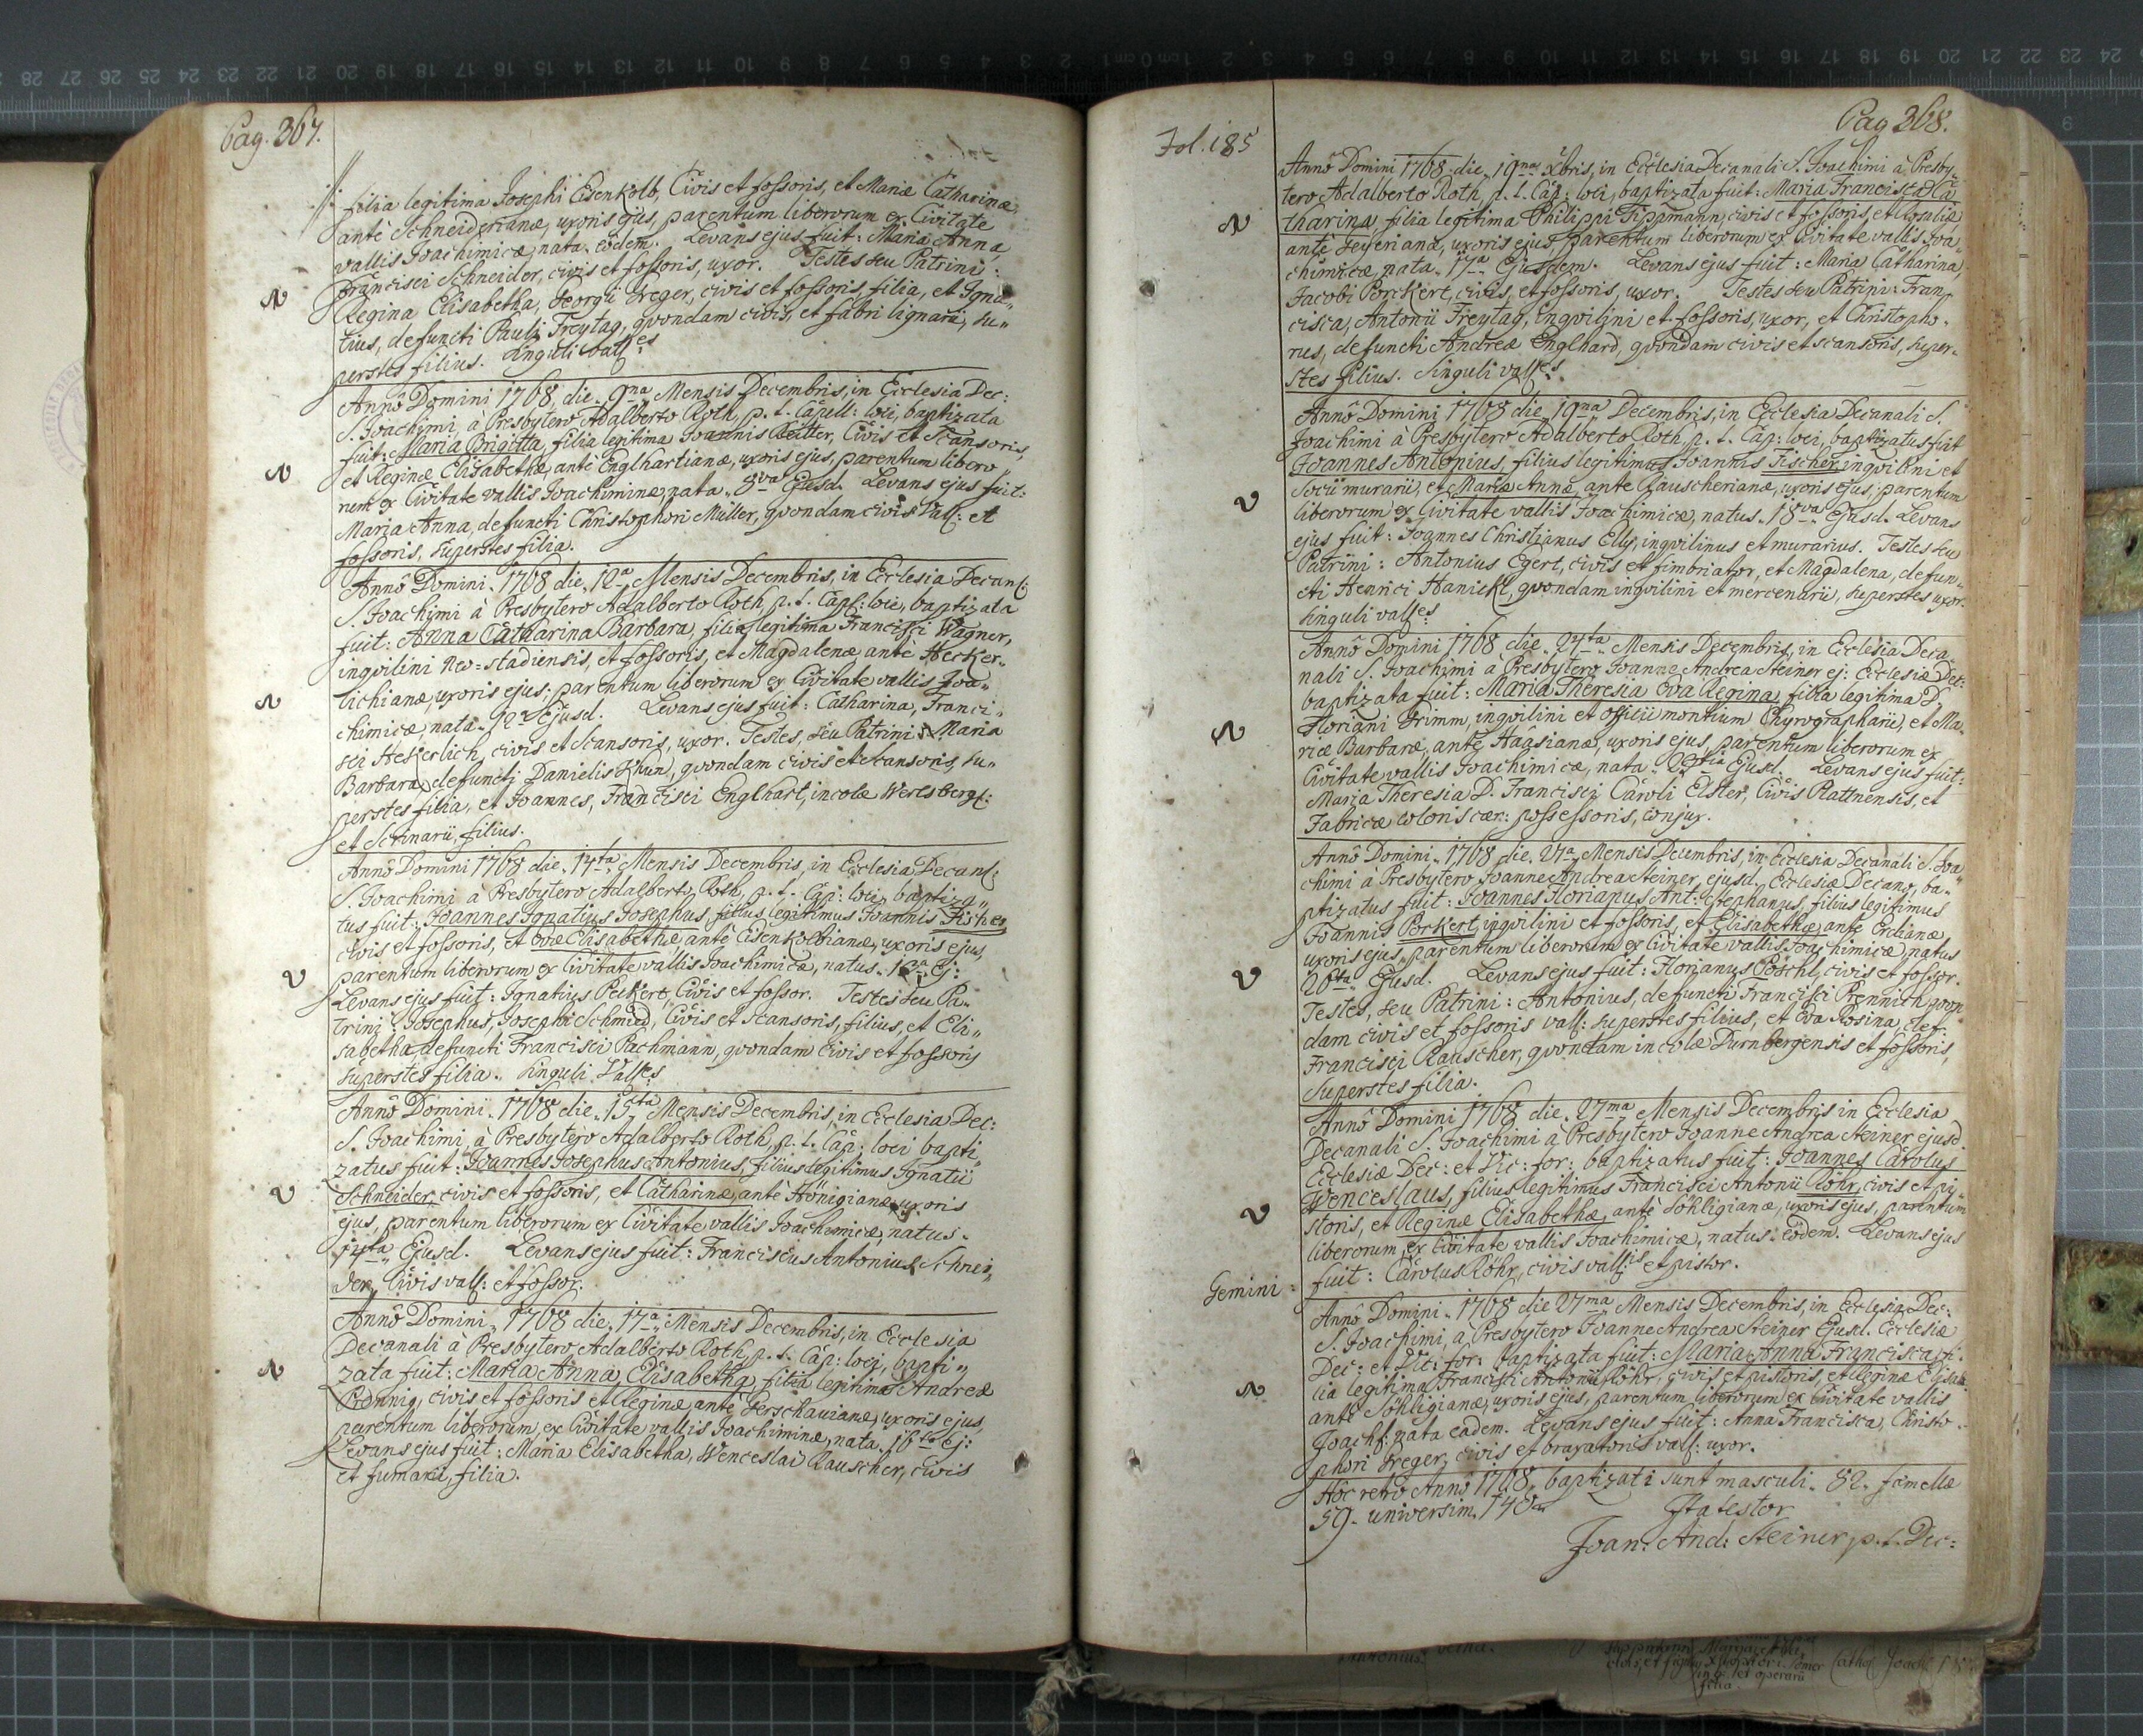 Pag. 367.
filia legitima Josephi Eisenkolb, Civis et fossoris, et Mariæ Catharinæ,
antè Schneiderianæ, uxoris ejus, parentum liberorum ex Civitate
vallis Joachimicæ, nata eôdem. Levans ejus fuit: Maria Anna,
Francisci Schneider, civis et fossoris, uxor. Testes seu Patrini:
Regina Elisabetha, Georgii Greger, civis et fossoris, filia, et Igna„
tius, defuncti Pauli Freytag, qvondam civis, et fabri lignarii, su„
perstes filius. Singuli vall: es
Annô Domini 1768 die 9na Mensis Decembris, in Ecclesia Dec:
S. Joachimi, à Presbytero Adalberto Roth, p. t. Capell: loci, baptizata
fuit: Maria Brigitta, filia legitima Joannis Reitter, Civis et Scansoris,
et Reginæ Elisabethæ antè Englhartianæ, uxoris ejus, parentum libero„
rum ex Civitate vallis Joachiminæ, nata 8va Ejusd. Levans ejus fuit:
Maria Anna, defuncti Christophori Müller, qvondam civis Vall: et
fossoris, superstes filia.
Annô Domini 1768 die 12a Mensis Decembris, in Ecclesia Decanl:
S. Joachimi à Presbytero Adalberto Roth, p. t. Capl: loci, baptizata
fuit: Anna Catharina Barbara, filia legitima Francisci Wagner,
inqvilini Neo=stadiensis, et fossoris, et Magdalenæ antè Hecker„
lichianæ, uxoris ejus, parentum liberorum ex Civitate vallis Joa„
chimicæ, nata 12a Ejusd. Levans ejus fuit: Catharina, Franci„
sci Hekerlich, civis et Scansoris, uxor. Testes, seu Patrini: Maria
Barbara, defuncti Danielis Khun, qvondam civis et Scansoris, su„
perstes filia, et Joannes, Francisci Englhart, incolæ Werlsbergl:
et Scrinarii, filius.
Annô Domini 1768 die 14ta Mensis Decembris, in Ecclesia Decanl:
S. Joachimi à Presbytero Adalberto Roth, p. t. Cap: loci, baptiza„
tus fuit: Joannes Ignatius Josephus, filius legitimus Joannis Fischer,
civis et fossoris, et Evæ Elisabethæ antè Eisenkolbianæ, uxoris ejus,
parentum liberorum ex Civitate vallis Joachimicæ, natus 13a Ej:
Levans ejus fuit: Ignatius Peckert, Civis et fossor. Testes seu Pa„
trini: Josephus, Josephi Schmied, Civis et Scansoris, filius, et Eli„
sabetha, defuncti Francisci Pachmann, qvondam civis et fossoris
superstes filia. Singuli Vall: es
Annô Domini 1768 die 15ta Mensis Decembris, in Ecclesia Dec:
S. Joachimi, à Presbytero Adalberto Roth, p. t. Cap: loci bapti„
zatus fuit: Joannes Josephus Antonius, filius legitimus Ignatii
Schneider, civis et fossoris, et Catharinæ, antè Hönigianæ, uxoris
ejus, parentum liberorum ex Civitate vallis Joachimicæ, natus
14ta Ejusd. Levans ejus fuit: Franciscus Antonius Schnei„
der, Civis vall: et fossor.
Annô Domini 1768 die 17a Mensis Decembris, in Ecclesia
Decanali à Presbytero Adalberto Roth, p. t. Cap: loci, bapti„
zata fuit: Maria Anna Elisabetha, filia legitima Andreæ
Prennig, civis et fossoris et Reginæ, antè Herschauianæ, uxoris ejus,
parentum liberorum, ex Civitate vallis Joachiminæ, nata 16ta Ej:
Levans ejus fuit: Maria Elisabetha, Wenceslai Rauscher, civis
et fumarii, filia.
Fol. 185
Pag 368.
Annô Domini 1768 die 19na Xbris, in Ecclesia Decanali S. Joachimi à Presby„
tero Adalberto Roth, p. t. Cap: loci, baptizata fuit: Maria Francisca Ca„
tharina, filia legitima Philippi Tippmann, civis et fossoris, et Rosaliæ
antè Geyerianæ, uxoris ejus parentum liberorum ex Civitate vallis Joa„
chimicæ, nata 17a Ejusdem. Levans ejus fuit: Maria Catharina,
Jacobi Porckert, civis, et fossoris, uxor. Testes seu Patrini: Fran„
cisca, Antonii Freytag, inqvilini et fossoris, uxor, et Christopho„
rus, defuncti Andreæ Englhard, qvondam civis et scansoris, super„
stes filius. Singuli vall: es
Annô Domini 1768 die 19na Decembris, in Ecclesia Decanali S.
Joachimi à Presbytero Adalberto Roth, p. t. Cap: loci, baptizatus fuit
Joannes Antonius, filius legitimus Joannis Fischer, inqvilini et
Socii murarii, et Mariæ Annæ, ante Rauscherianæ, uxoris ejus, parentum
liberorum ex Civitate vallis Joachimicæ, natus 18va Ejusd. Levans
ejus fuit: Joannes Christianus Elly, inqvilinus et murarius. Testes seu
Patrini: Antonius Egert, civis et fimbriator, et Magdalena, defun„
cti Henrici Hanickl, qvondam inqvilini et mercenarii, superstes uxor.
Singuli vall: es
Annô Domini 1768 die 24ta Mensis Decembris, in Ecclesia Deca„
nali S. Joachimi à Presbytero Joanne Andrea Steiner ej: Ecclesiæ Dec:
baptizata fuit: Maria Theresia Eva Regina, filia legitima D.
Floriani Grimm, inqvilini et officii montium Chyrographarii, et Ma„
riæ Barbaræ, antè Haasianæ, uxoris ejus, parentum liberorum ex
Civitate vallis Joachimicæ, nata 23tia Ejusd. Levans ejus fuit:
Maria Theresia D. Francisci Caroli Elster, Civis Plattnensis, et
Fabricæ coloris cær: possessoris, conjux.
Annô Domini 1768 die 27a Mensis Decembris, in Ecclesia Decanali S. Joa„
chimi à Presbytero Joanne Andrea Steiner, ejusd. Ecclesiæ Decano, ba„
ptizatus fuit: Joannes Florianus Ant: Stephanus, filius legitimus
Joannis Porkert, inqvilini et fossoris, et Elisabethæ, ante Erdianæ
uxoris ejus, parentum liberorum ex Civitate vallis Joachimicæ, natus
26ta Ejusd. Levans ejus fuit: Florianus Pöschl, civis et fossor.
Testes, seu Patrini: Antonius, defuncti Francisci Prennich qvon„
dam civis et fossoris vall: superstes filius, et Eva Rosina, def:
Francisci Rauscher, qvondam incolæ Durnbergensis et fossoris,
Superstes filia.
Annô Domini 1768 die 27ma Mensis Decembris in Ecclesia
Decanali S. Joachimi à Presbytero Joanne Andrea Steiner ejusd.
Ecclesiæ Dec: et Vic: for: baptizatus fuit: Joannes Carolus
Wenceslaus, filius legitimus Francisci Antonii Röhr, civis et pi„
storis, et Reginæ Elisabethæ, antè Söhligianæ, uxoris ejus, parentum
liberorum, ex Civitate vallis Joachimicæ, natus eôdem. Levans ejus
fuit: Carolus Röhr, civis vallis et pistor.
Gemini:
Annô Domini 1768 die 27ma Mensis Decembris, in Ecclesia Dec:
S. Joachimi, à Presbytero Joanne Andrea Steiner Ejusd. Ecclesiæ
Dec: et Vic: for: baptizata fuit: Maria Anna Francisca, fi„
lia legitima Francisci Antonii Röhr, civis et pistoris, et Reginæ Elisab:
antè Söhligianæ, uxoris ejus, parentum liberorum ex Civitate vallis
Joachl: nata eadem. Levans ejus fuit: Anna Francisca, Christo„
phori Greger, civis et braxatoris vall: uxor.
Hôc retrô Annô 1768, baptizati sunt masculi 82. femellæ
59. universim 140
Ita testor
Joan: And: Steiner p. t. Dec: